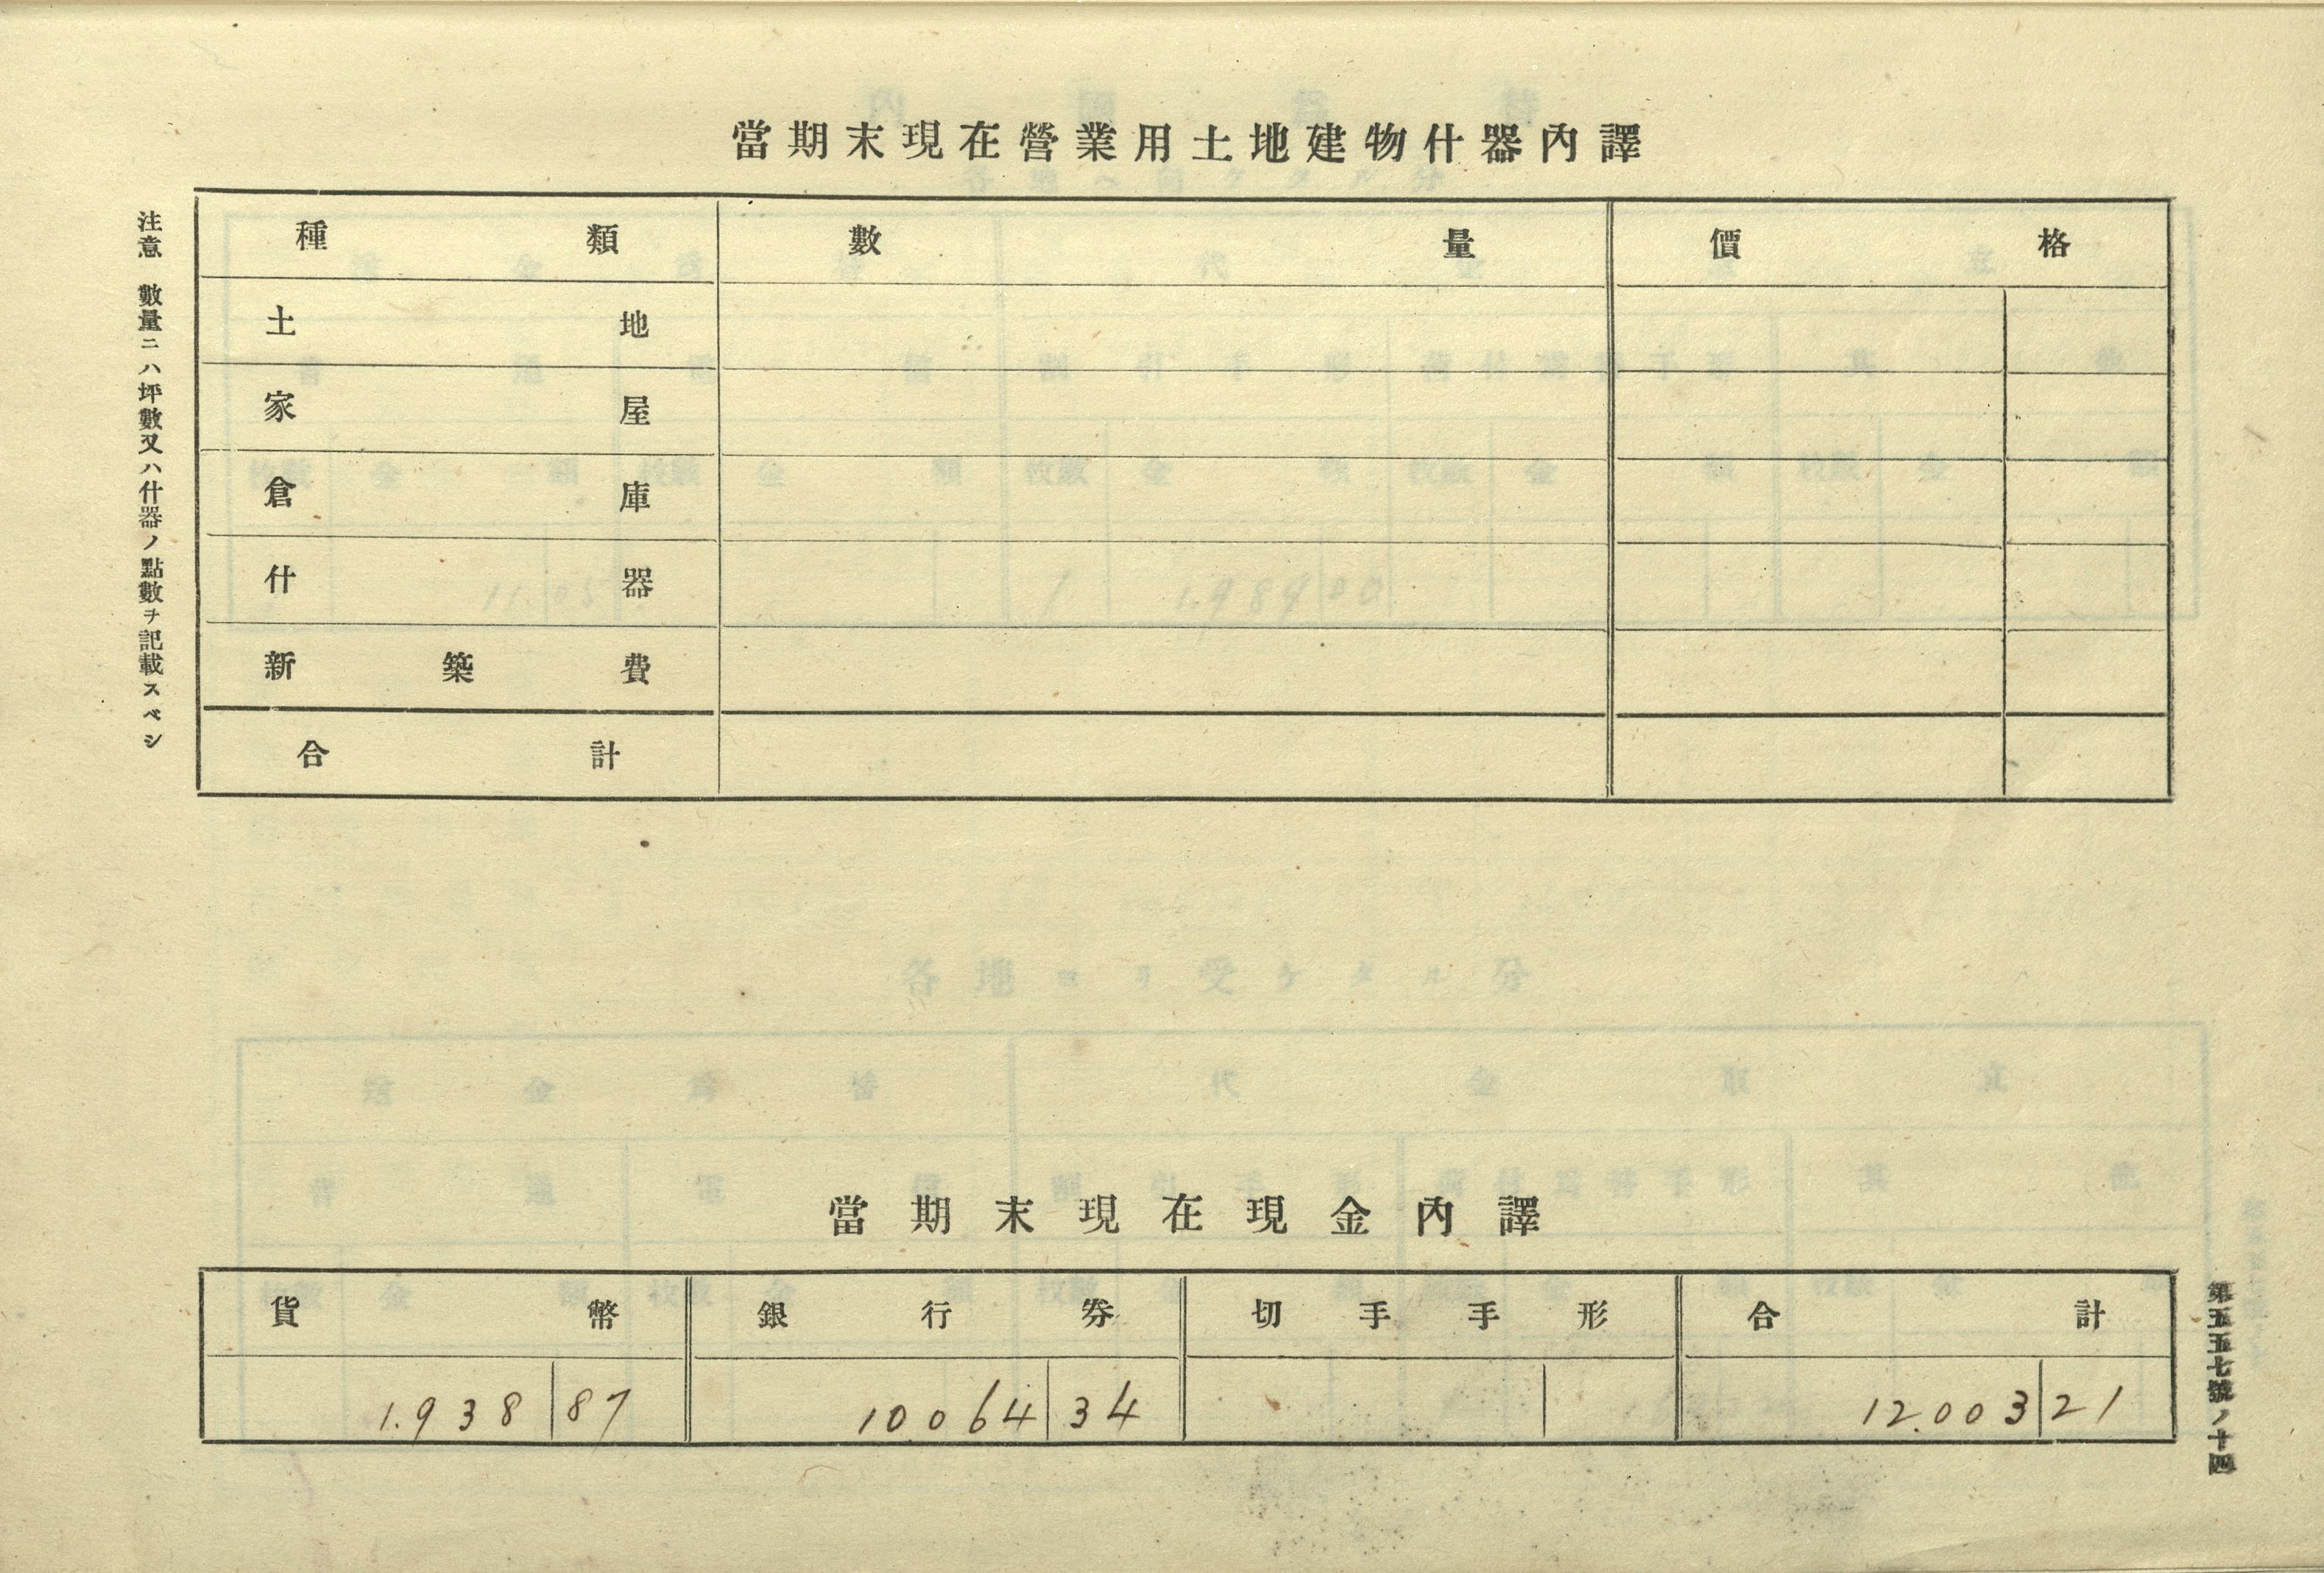 當期末現在營業用土地建物什器內譯
種類 數量 價格
土地
家屋
倉庫
什器
新築費
合計
注意 數量ニハ坪數又ハ什器ノ點數ヲ記載スベシ
當期末現在現金內譯
貨幣 銀行券 切手手形 合計
1.938 87 10.064 34 12.003 21
第五五七號ノ十四